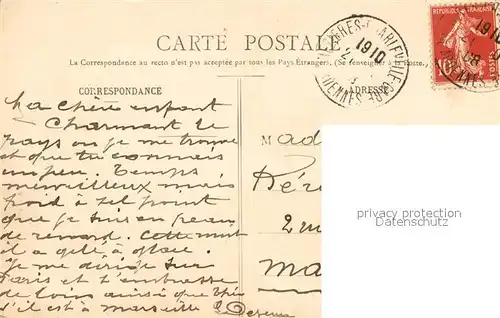 CARTE POSTALE
La Correspondance au recto n'est pas acceptée par tous les Pays Étrangers. (Se renseigner à la Poste.)
CORRESPONDANCE
ADRESSE
RÉPUBLIQUE FRANÇAISE
10
1910
1910
Ma chère enfant
Charmant le
pays où je me trouve
et que tu connais
un peu. Temps
merveilleux mais
froid à tel point
que je suis en peau
de renard. Cette nuit
il a gelé à glace.
Je me dirige sur
Paris et t'embrasse
de loin ainsi que
s'il est à Marseille
M ad
2
Ma
privacy protection
Datenschutz